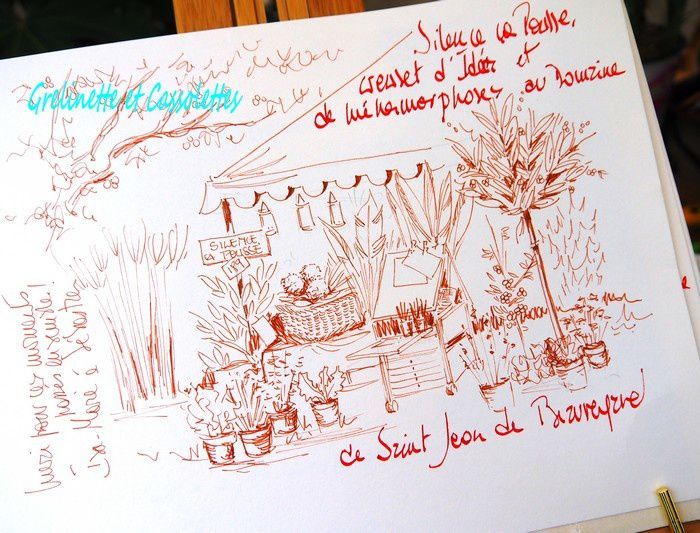 Grelinette et Cassolettes
Silence ça Pousse,
creuset d'Idées et
de métamorphoses au Domaine
SILENCE
ÇA
POUSSE
de Saint Jean de Beauregard
Merci pour ces moments
vivus ensemble!